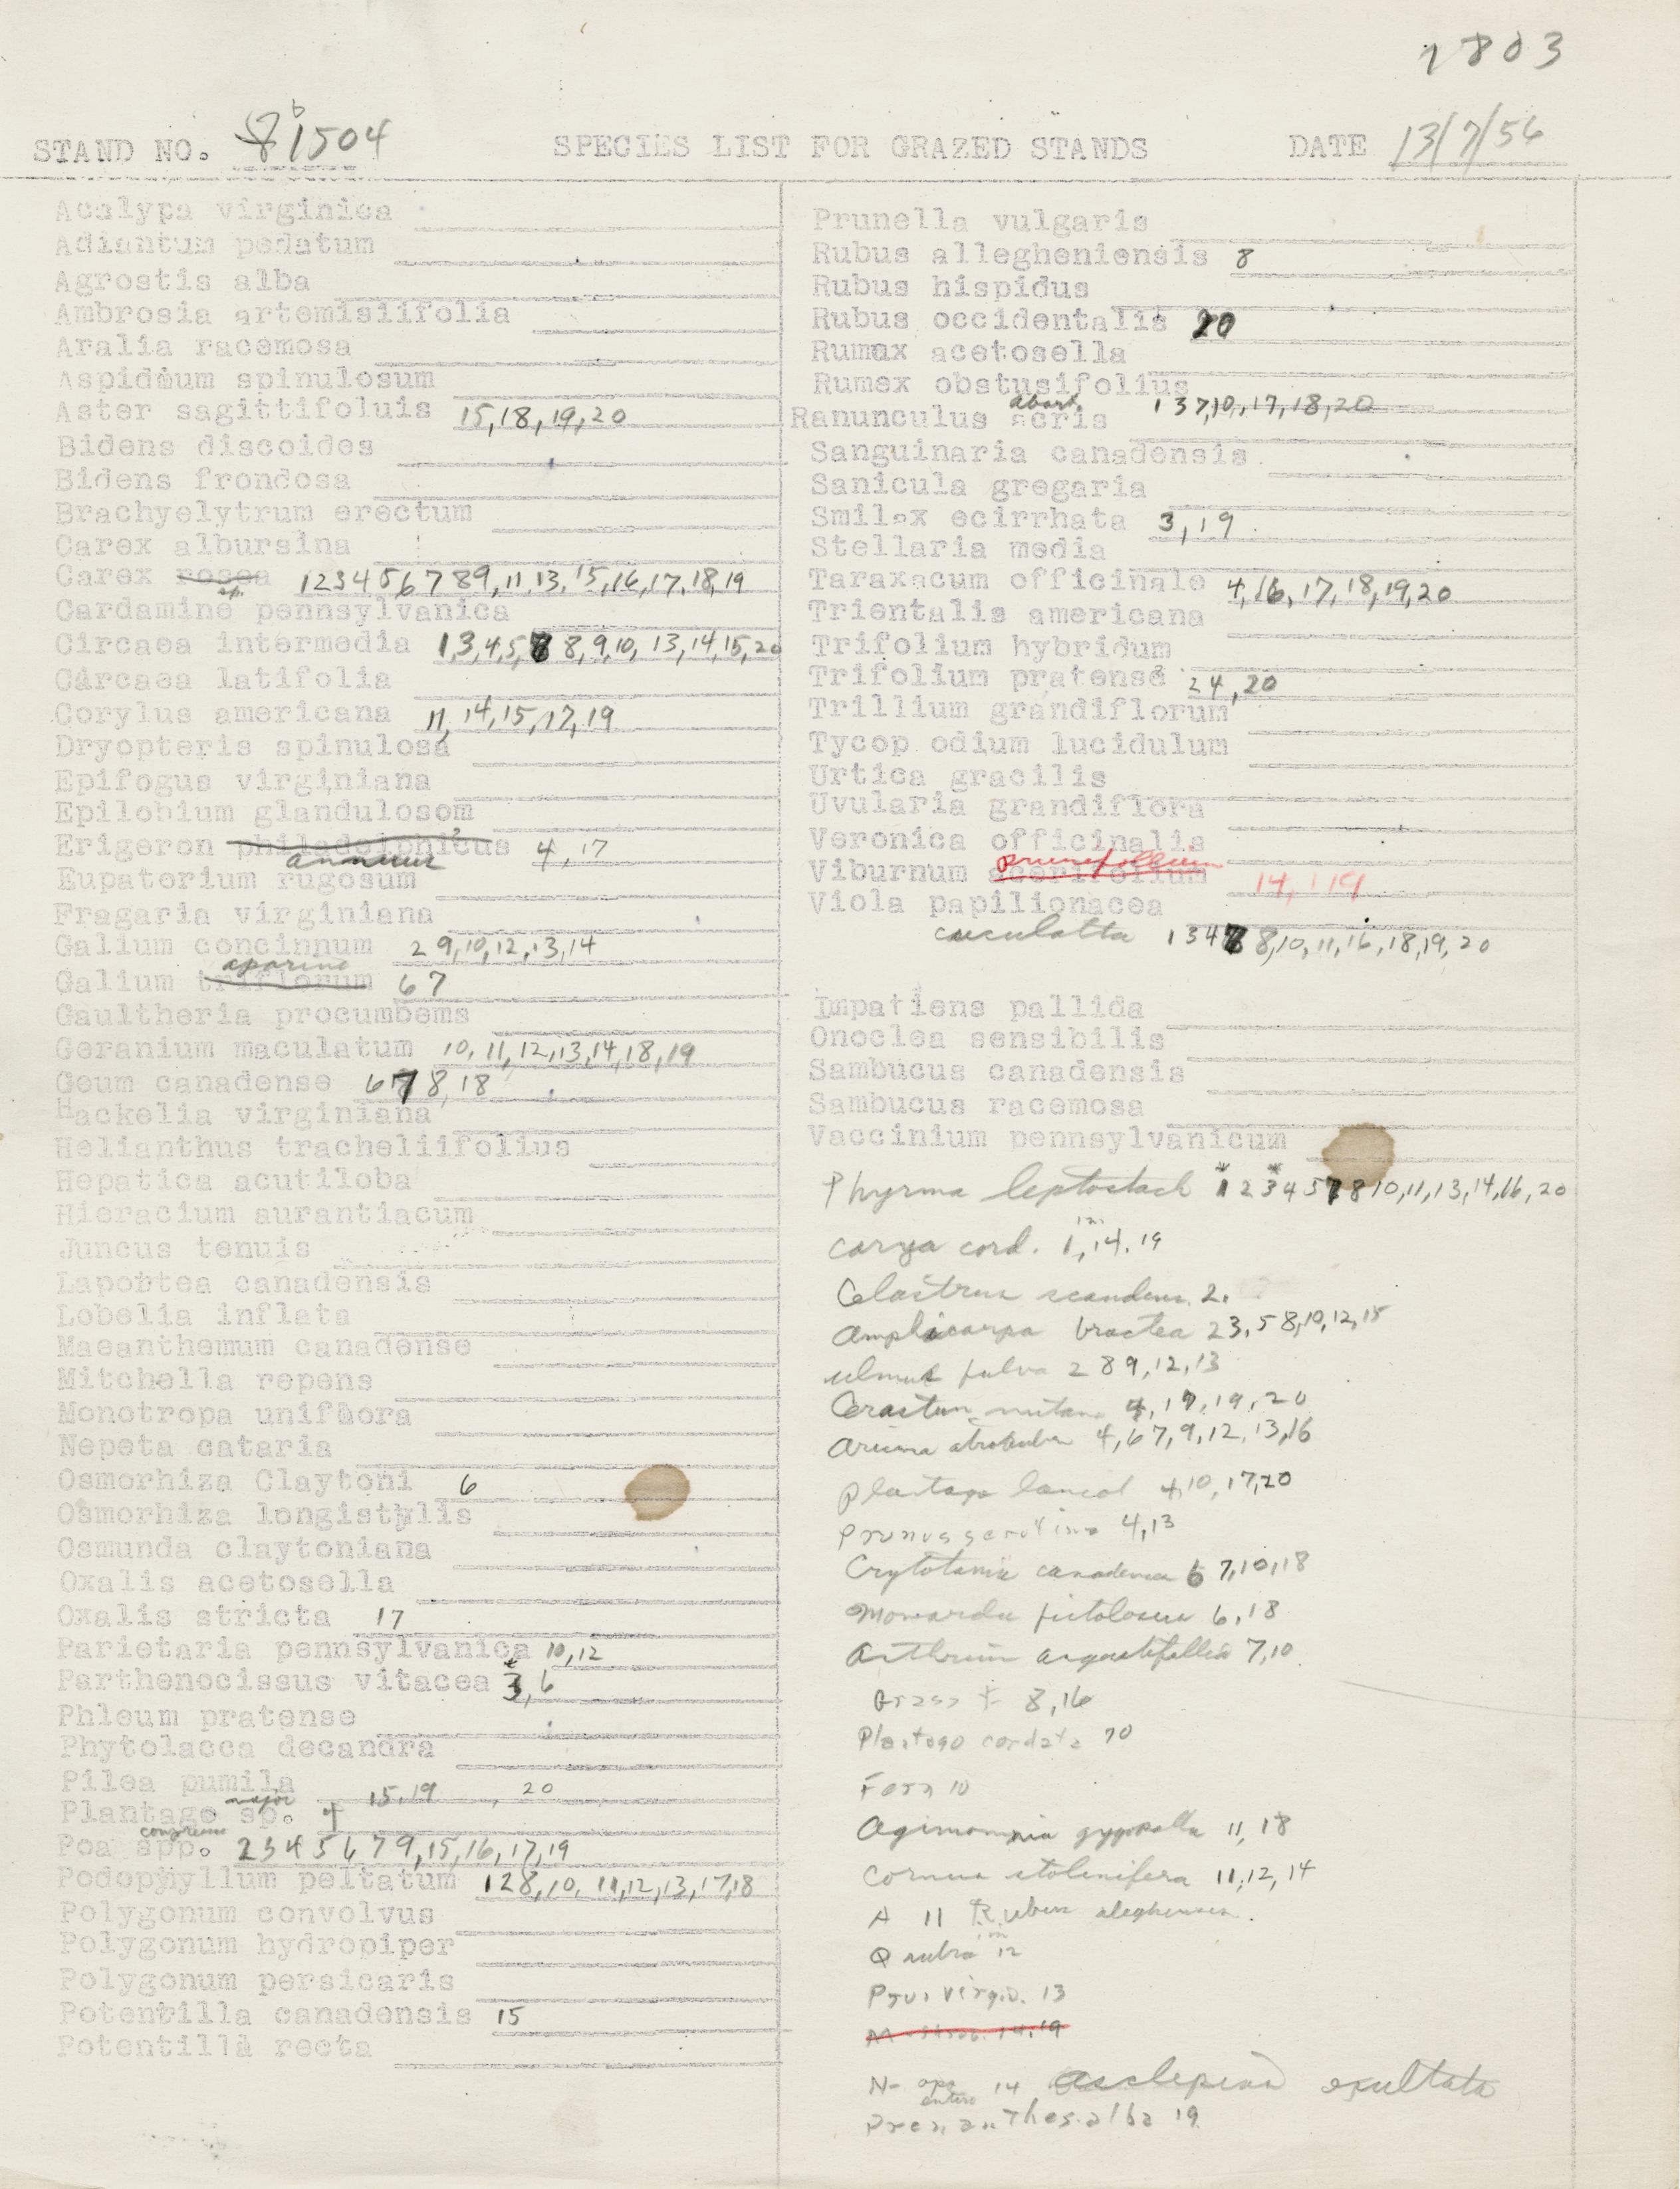 2803
STAND NO. 81504 SPECIES LIST FOR GRAZED STANDS DATE 13/7/56
Acalypa virginica
Adiantum pedatum
Agrostis alba
Ambrosia artemisiifolia
Aralia racemosa
Aspidium spinulosum
Aster sagittifoluis 15,18,19,20
Bidens discoides
Bidens frondosa
Brachyelytrum erectum
Carex albursina
Carex rosea sp. 1 2 3 4 5 6 7 8 9, 11, 13, 15, 16, 17, 18, 19
Cardamine pennsylvanica
Circaea intermedia 1,3,4,5, 8,9,10, 13,14,15,20
Circaea latifolia
Corylus americana 11, 14,15,17,19
Dryopteris spinulosa
Epifogus virginiana
Epilobium glandulosom
Erigeron philadelphicus annuus 4,17
Eupatorium rugosum
Fragaria virginiana
Galium concinnum 2 9,10,12,13,14
Galium triflorum aparine 6 7
Gaultheria procumbems
Geranium maculatum 10,11,12,13,14,18,19
Geum canadense 6 7 8, 18
Hackelia virginiana
Helianthus tracheliifolius
Hepatica acutiloba
Hieracium aurantiacum
Juncus tenuis
Laportea canadensis
Lobelia inflata
Maeanthemum canadense
Mitchella repens
Monotropa uniflora
Nepeta cataria
Osmorhiza Claytoni 6
Osmorhiza longistylis
Osmunda claytoniana
Oxalis acetosella
Oxalis stricta 17
Parietaria pennsylvanica 10,12
Parthenocissus vitacea 3,6
Phleum pratense
Phytolacca decandra
Pilea pumila
Plantago sp. major 15,19, 20
Poa spp. 2 3 4 5 6 7 9,15,16,17,19
Podophyllum peltatum 1 2 8,10, 11,12,13,17,18
Polygonum convolvus
Polygonum hydropiper
Polygonum persicaris
Potentilla canadensis 15
Potentilla recta
Prunella vulgaris
Rubus allegheniensis 8
Rubus hispidus
Rubus occidentalis 20
Rumax acetosella
Rumex obstusifolius
Ranunculus acris abort. 1 3 7,10,17,18,20
Sanguinaria canadensis
Sanicula gregaria
Smilax ecirrhata 3,19
Stellaria media
Taraxacum officinale 4,16,17,18,19,20
Trientalis americana
Trifolium hybridum
Trifolium pratense 2 4,20
Trillium grandiflorum
Tycop odium lucidulum
Urtica gracilis
Uvularia grandiflora
Veronica officinalis
Viburnum acerifolium prunifolium 14, 19
Viola papilionacea
cuculatta 1 3 4 8,10,11,16,18,19,20
Impatiens pallida
Onoclea sensibilis
Sambucus canadensis
Sambucus racemosa
Vaccinium pennsylvanicum
Phyrma leptostach 1 2 3 4 5 7 8 10,11,13,14,16,20
Carya cord. 1,14,19
Celastrus scandens 2.
Amphicarpa bractea 2 3,5 8,10,12,15
Ulmus fulva 2 8 9,12,13
4,17,19,20
4,6 7,9,12,13,16
Plantago lanceol 4,10,17,20
Prunus serotina 4,13
Crytotania canadensa 6 7,10,18
Monarda fistolosum 6,18
7,10
Grass 8,16
Plantago cordata 10
Fern 10
11,18
Cornus stolenifera 11,12,14
A 11 Rubus aleghensis.
Q rubra 12
Prus virgin. 13
14,19
N- opa entire 14 Asclepias exultata
Prenanthes alba 19